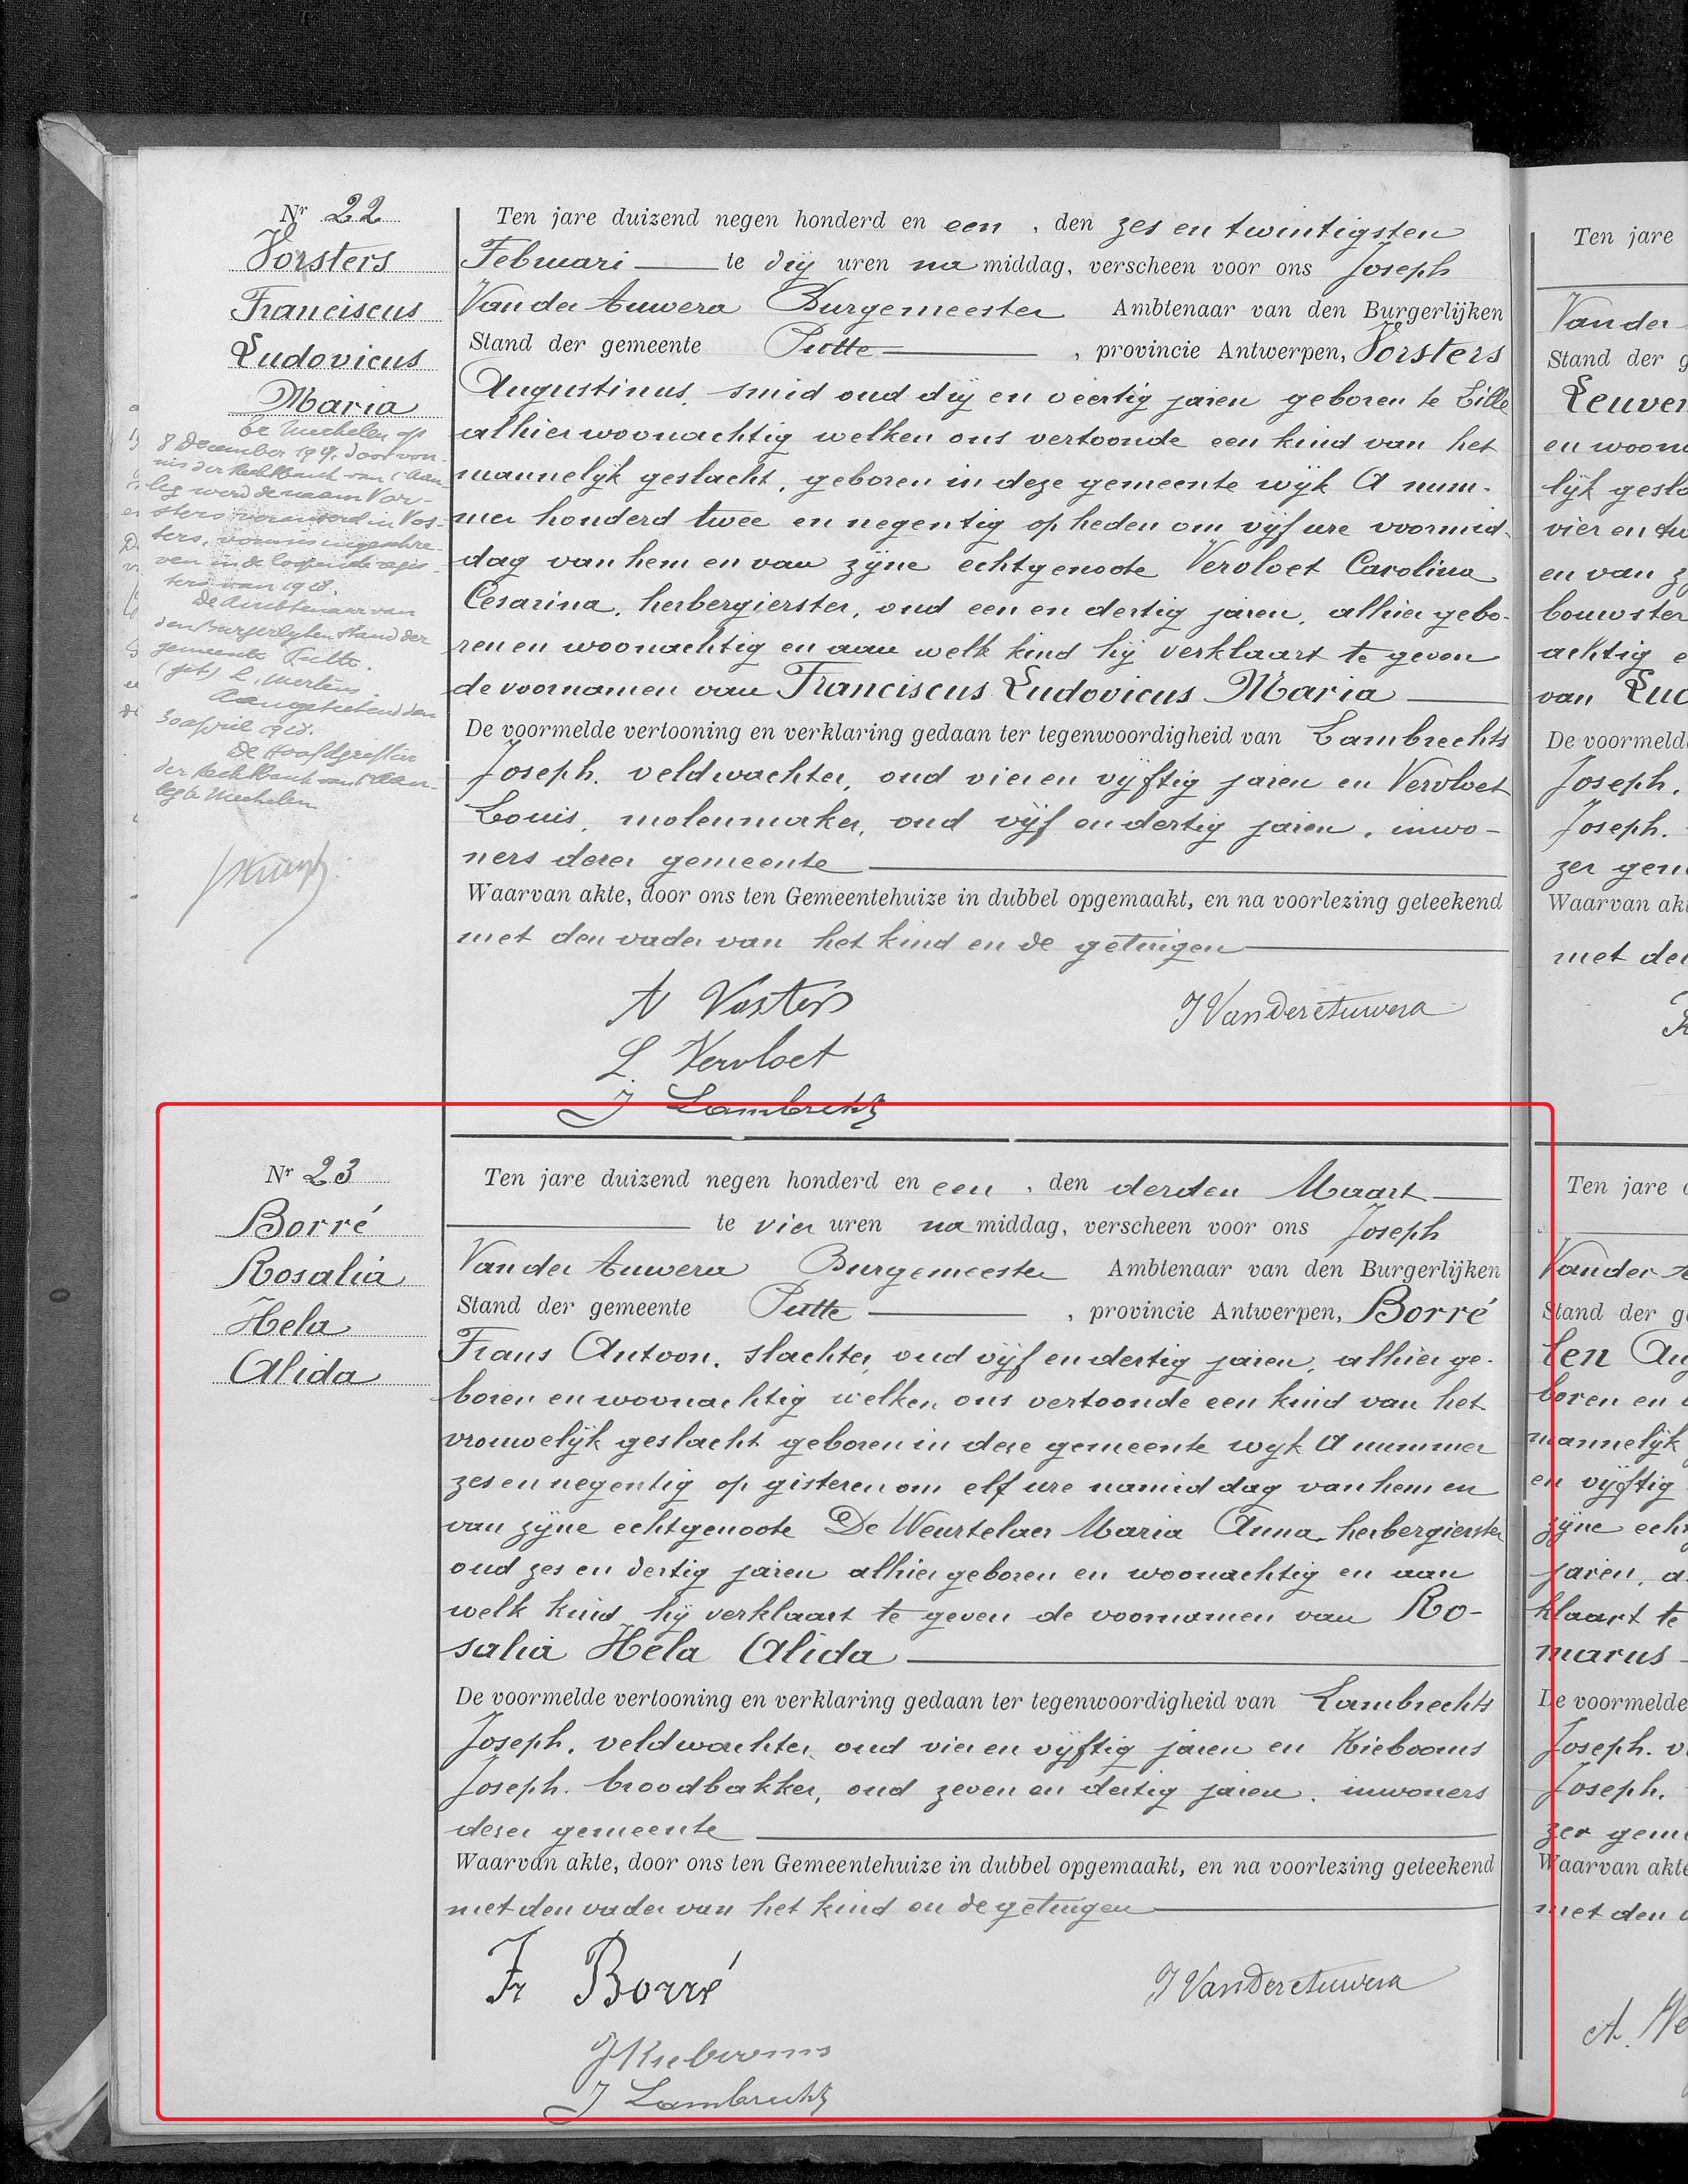 Nr 22
Vorsters
Franciscus
Ludovicus
Maria
te Mechelen op
8 December 19 door von-
nis der Rechtbank van 1 Aan-
leg werd de naam Vor-
sters veranderd in Vos-
ters, vonnis ingeschre-
ven in de loopende regis
ters van 1918.
De Ambtenaar van
den Burgerlyken stand der
gemeente Putte.
(get) L. Mertens
Aangeteekend den
30 april 1918.
De Hoofdgreffier
der Rechtbank van 1 Aan-
leg te Mechelen
Ten jare duizend negen honderd en een, den zes en twintigsten
Februari te drij uren na middag, verscheen voor ons Joseph
Van der Auwera Burgemeester Ambtenaar van den Burgerlijken
Stand der gemeente Putte, provincie Antwerpen, Vorsters
Augustinus, smid oud drij en veertig jaren geboren te Lille
alhier woonachtig welken ons vertoonde een kind van het
mannelijk geslacht, geboren in deze gemeente wijk A num-
mer honderd twee en negentig op heden om vijf ure voormid-
dag van hem en van zijne echtgenoote Vervloet Carolina
Cesarina, herbergierster, oud een en dertig jaren, alhier gebo-
ren en woonachtig en aan welk kind hij verklaart te geven
de voornamen van Franciscus Ludovicus Maria
De voormelde vertooning en verklaring gedaan ter tegenwoordigheid van Lambrechts
Joseph, veldwachter, oud vier en vijftig jaren en Vervloet
Louis, molenmaker, oud vijf en dertig jaren, inwo-
ners dezer gemeente
Waarvan akte, door ons ten Gemeentehuize in dubbel opgemaakt, en na voorlezing geteekend
met den vader van het kind en de getuigen
A Vosters
J Van Der Auwera
L. Vervloet
J Lambrechts
Nr 23
Borré
Rosalia
Hela
Alida
Ten jare duizend negen honderd en een, den derden Maart
te vier uren na middag, verscheen voor ons Joseph
Van der Auwera Burgemeester Ambtenaar van den Burgerlijken
Stand der gemeente Putte, provincie Antwerpen, Borré
Frans Antoon, slachter, oud vijf en dertig jaren, alhier ge-
boren en woonachtig welken ons vertoonde een kind van het
vrouwelijk geslacht geboren in deze gemeente wijk A nummer
zes en negentig op gisteren om elf ure namiddag van hem en
van zijne echtgenoote De Weurtelaer Maria Anna herbergierster
oud zes en dertig jaren alhier geboren en woonachtig en aan
welk kind hij verklaart te geven de voornamen van Ro-
salia Hela Alida
De voormelde vertooning en verklaring gedaan ter tegenwoordigheid van Lambrechts
Joseph, veldwachter oud vier en vijftig jaren en Kiebooms
Joseph, broodbakker, oud zeven en dertig jaren, inwoners
dezer gemeente
Waarvan akte, door ons ten Gemeentehuize in dubbel opgemaakt, en na voorlezing geteekend
met den vader van het kind en de getuigen
Fr Borré
J Van Der Auwera
J Kiebooms
J Lambrechts
Ten jare
Van der
Stand der g
Leuven
en woon
lijk gesl
vier en tw
en van z
bouwster
achtig e
van Lud
De voormeld
Joseph,
Joseph.
zer gem
Waarvan akt
met den
Ten jare
Van der A
Stand der g
ten Au
boren en
mannelijk
en vijftig
zijne ech
jaren, a
klaart te
marus
De voormelde
Joseph. v
Joseph,
zer geme
Waarvan akte
met den
A. Ve